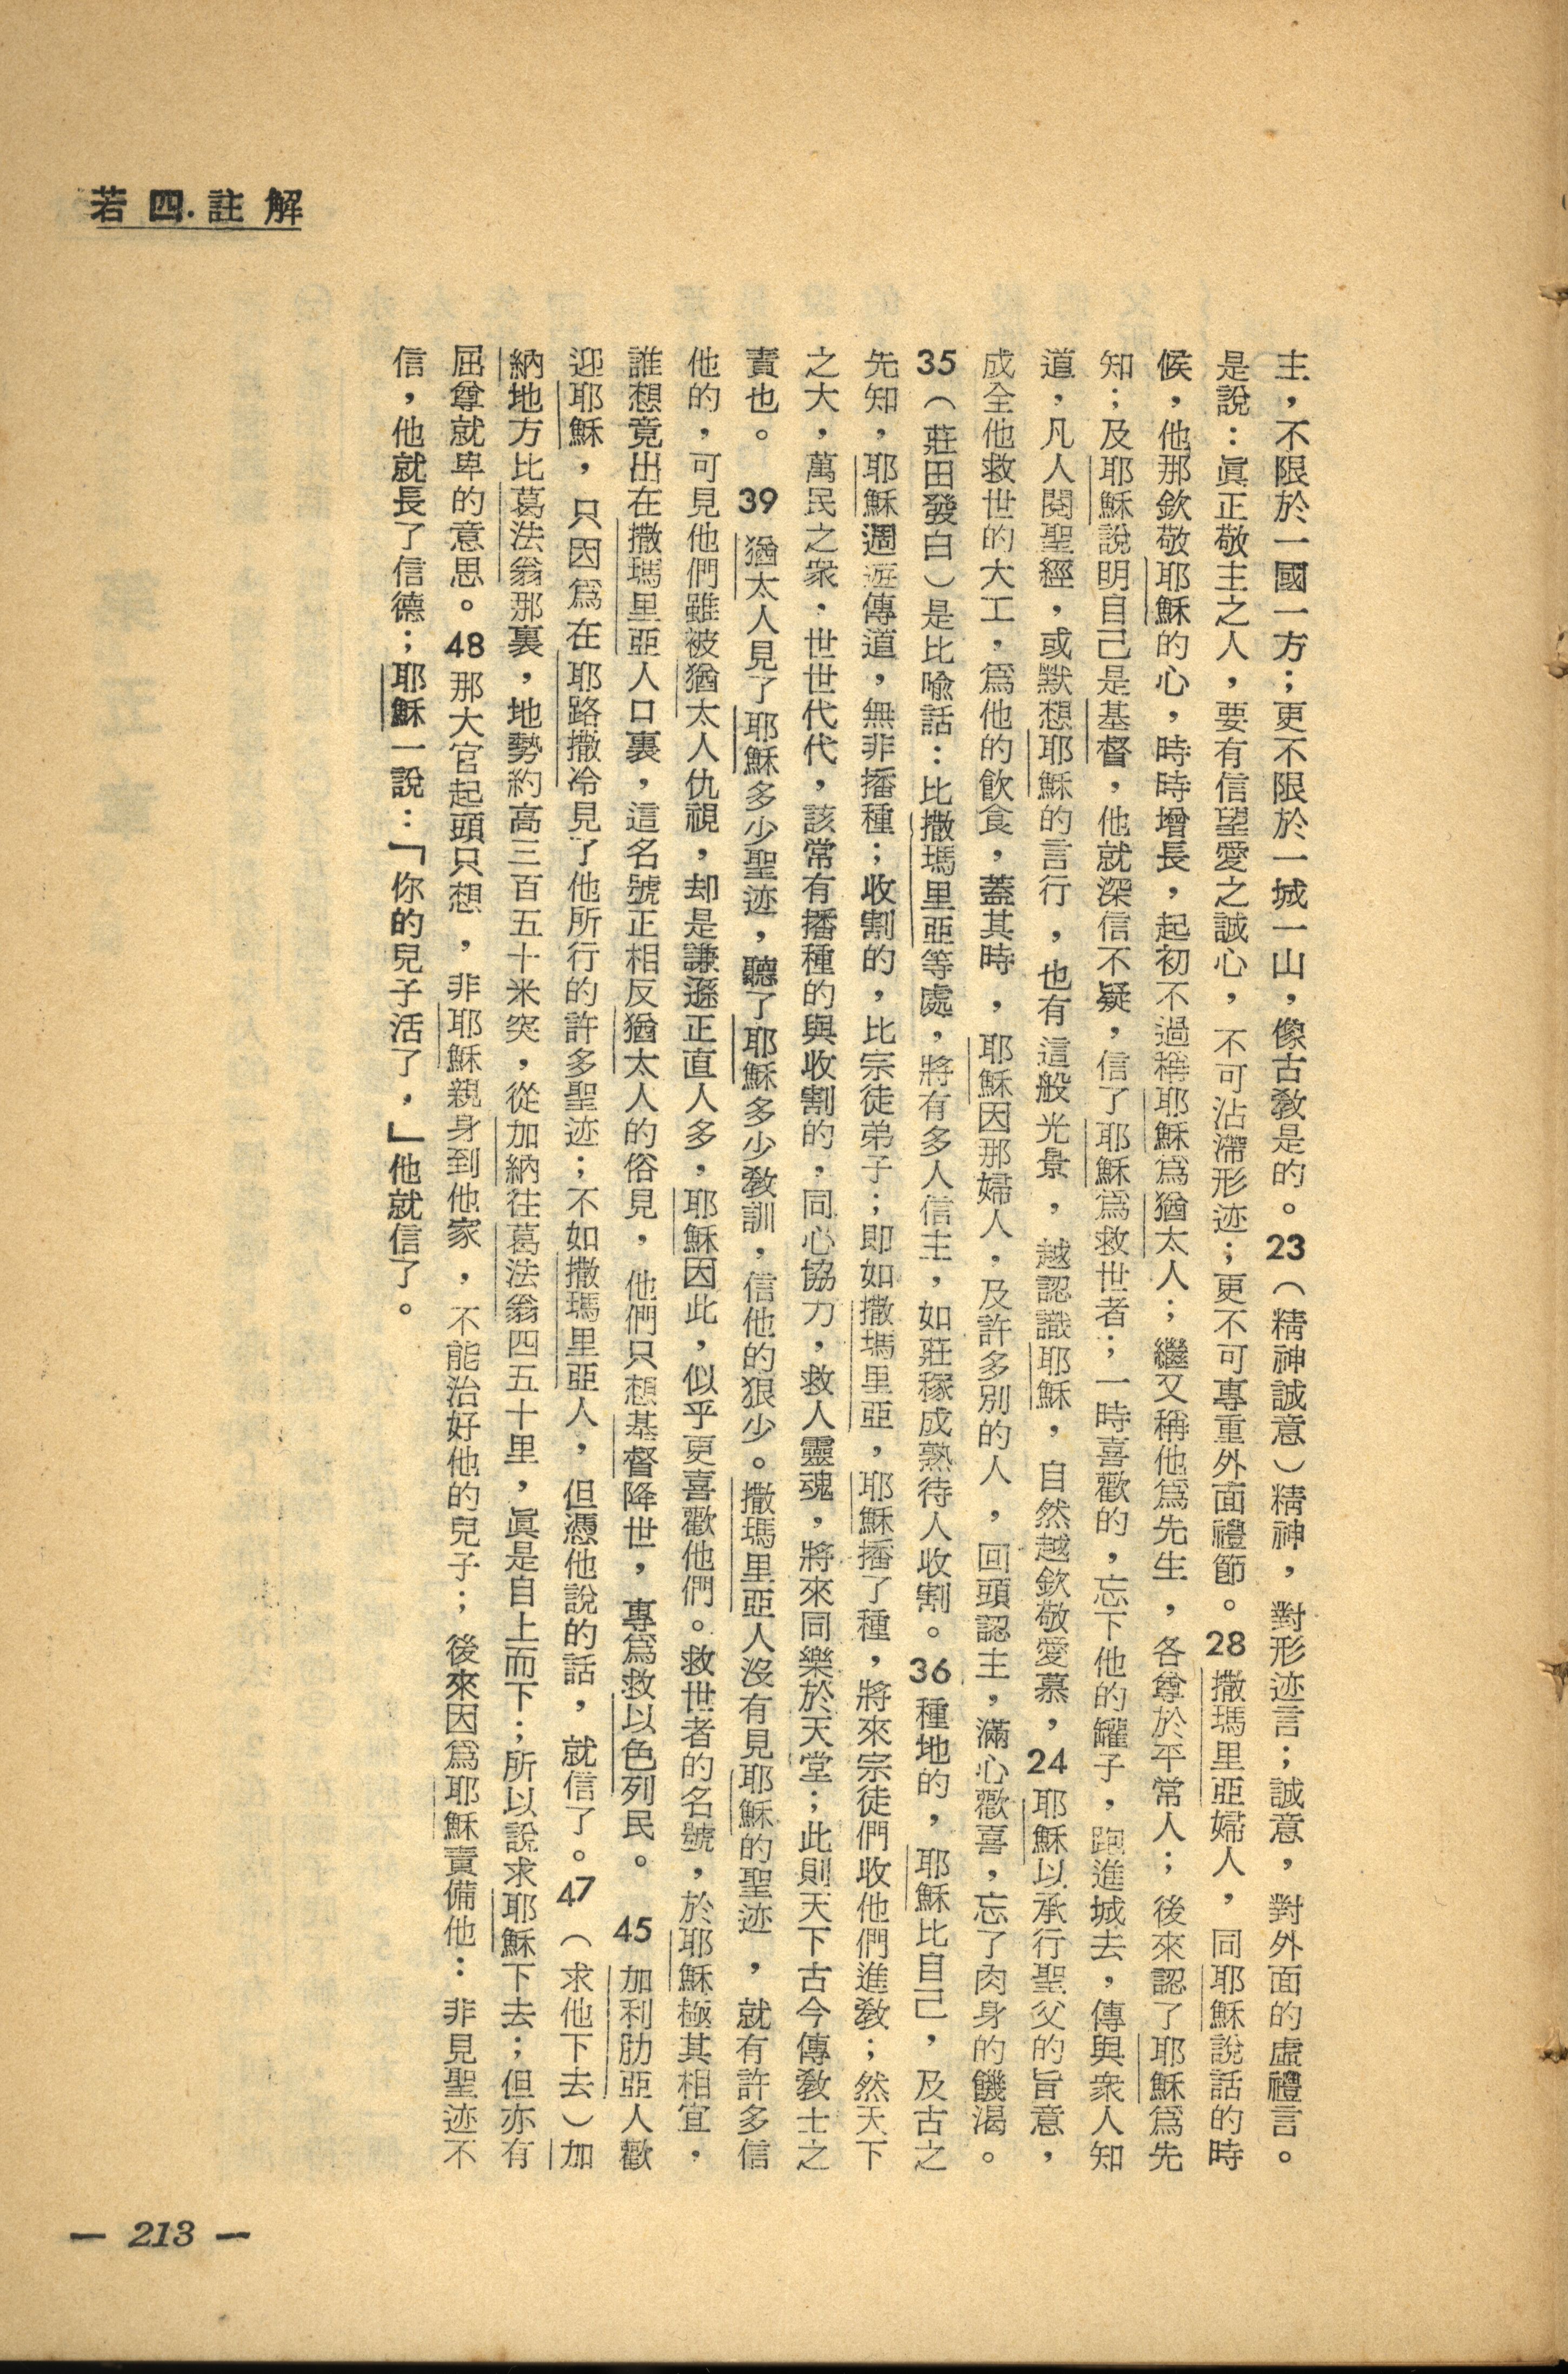 若四.註解
主，不限於一國一方；更不限於一城一山，像古敎是的。23（精神誠意）精神，對形迹言；誠意，對外面的虛禮言。
是說：眞正敬主之人，要有信望愛之誠心，不可沾滯形迹；更不可專重外面禮節。28撒瑪里亞婦人，同耶穌說話的時
候，他那欽敬耶穌的心，時時增長，起初不過稱耶穌爲猶太人；繼又稱他爲先生，各尊於平常人；後來認了耶穌爲先
知；及耶穌說明自己是基督，他就深信不疑，信了耶穌爲救世者；一時喜歡的，忘下他的罐子，跑進城去，傳與衆人知
道，凡人閱聖經，或默想耶穌的言行，也有這般光景，越認識耶穌，自然越欽敬愛慕，24耶穌以承行聖父的旨意，
成全他救世的大工，爲他的飲食，蓋其時，耶穌因那婦人，及許多別的人，回頭認主，滿心歡喜，忘了肉身的饑渴。
35（莊田發白）是比喩話：比撒瑪里亞等處，將有多人信主，如莊稼成熟待人收割。36種地的，耶穌比自己，及古之
先知，耶穌週遊傳道，無非播種；收割的，比宗徒弟子；即如撒瑪里亞，耶穌播了種，將來宗徒們收他們進敎；然天下
之大，萬民之衆，世世代代，該常有播種的與收割的，同心協力，救人靈魂，將來同樂於天堂；此則天下古今傳敎士之
責也。39猶太人見了耶穌多少聖迹，聽了耶穌多少敎訓，信他的狠少。撒瑪里亞人沒有見耶穌的聖迹，就有許多信
他的，可見他們雖被猶太人仇視，却是謙遜正直人多，耶穌因此，似乎更喜歡他們。救世者的名號，於耶穌極其相宜，
誰想竟出在撒瑪里亞人口裏，這名號正相反猶太人的俗見，他們只想基督降世，專爲救以色列民。45加利肋亞人歡
迎耶穌，只因爲在耶路撒冷見了他所行的許多聖迹；不如撒瑪里亞人，但憑他說的話，就信了。47（求他下去）加
納地方比葛法翁那裏，地勢約高三百五十米突，從加納往葛法翁四五十里，眞是自上而下；所以說求耶穌下去；但亦有
屈尊就卑的意思。48那大官起頭只想，非耶穌親身到他家，不能治好他的兒子；後來因爲耶穌責備他：非見聖迹不
信，他就長了信德；耶穌一說：「你的兒子活了，」他就信了。
— 213 —